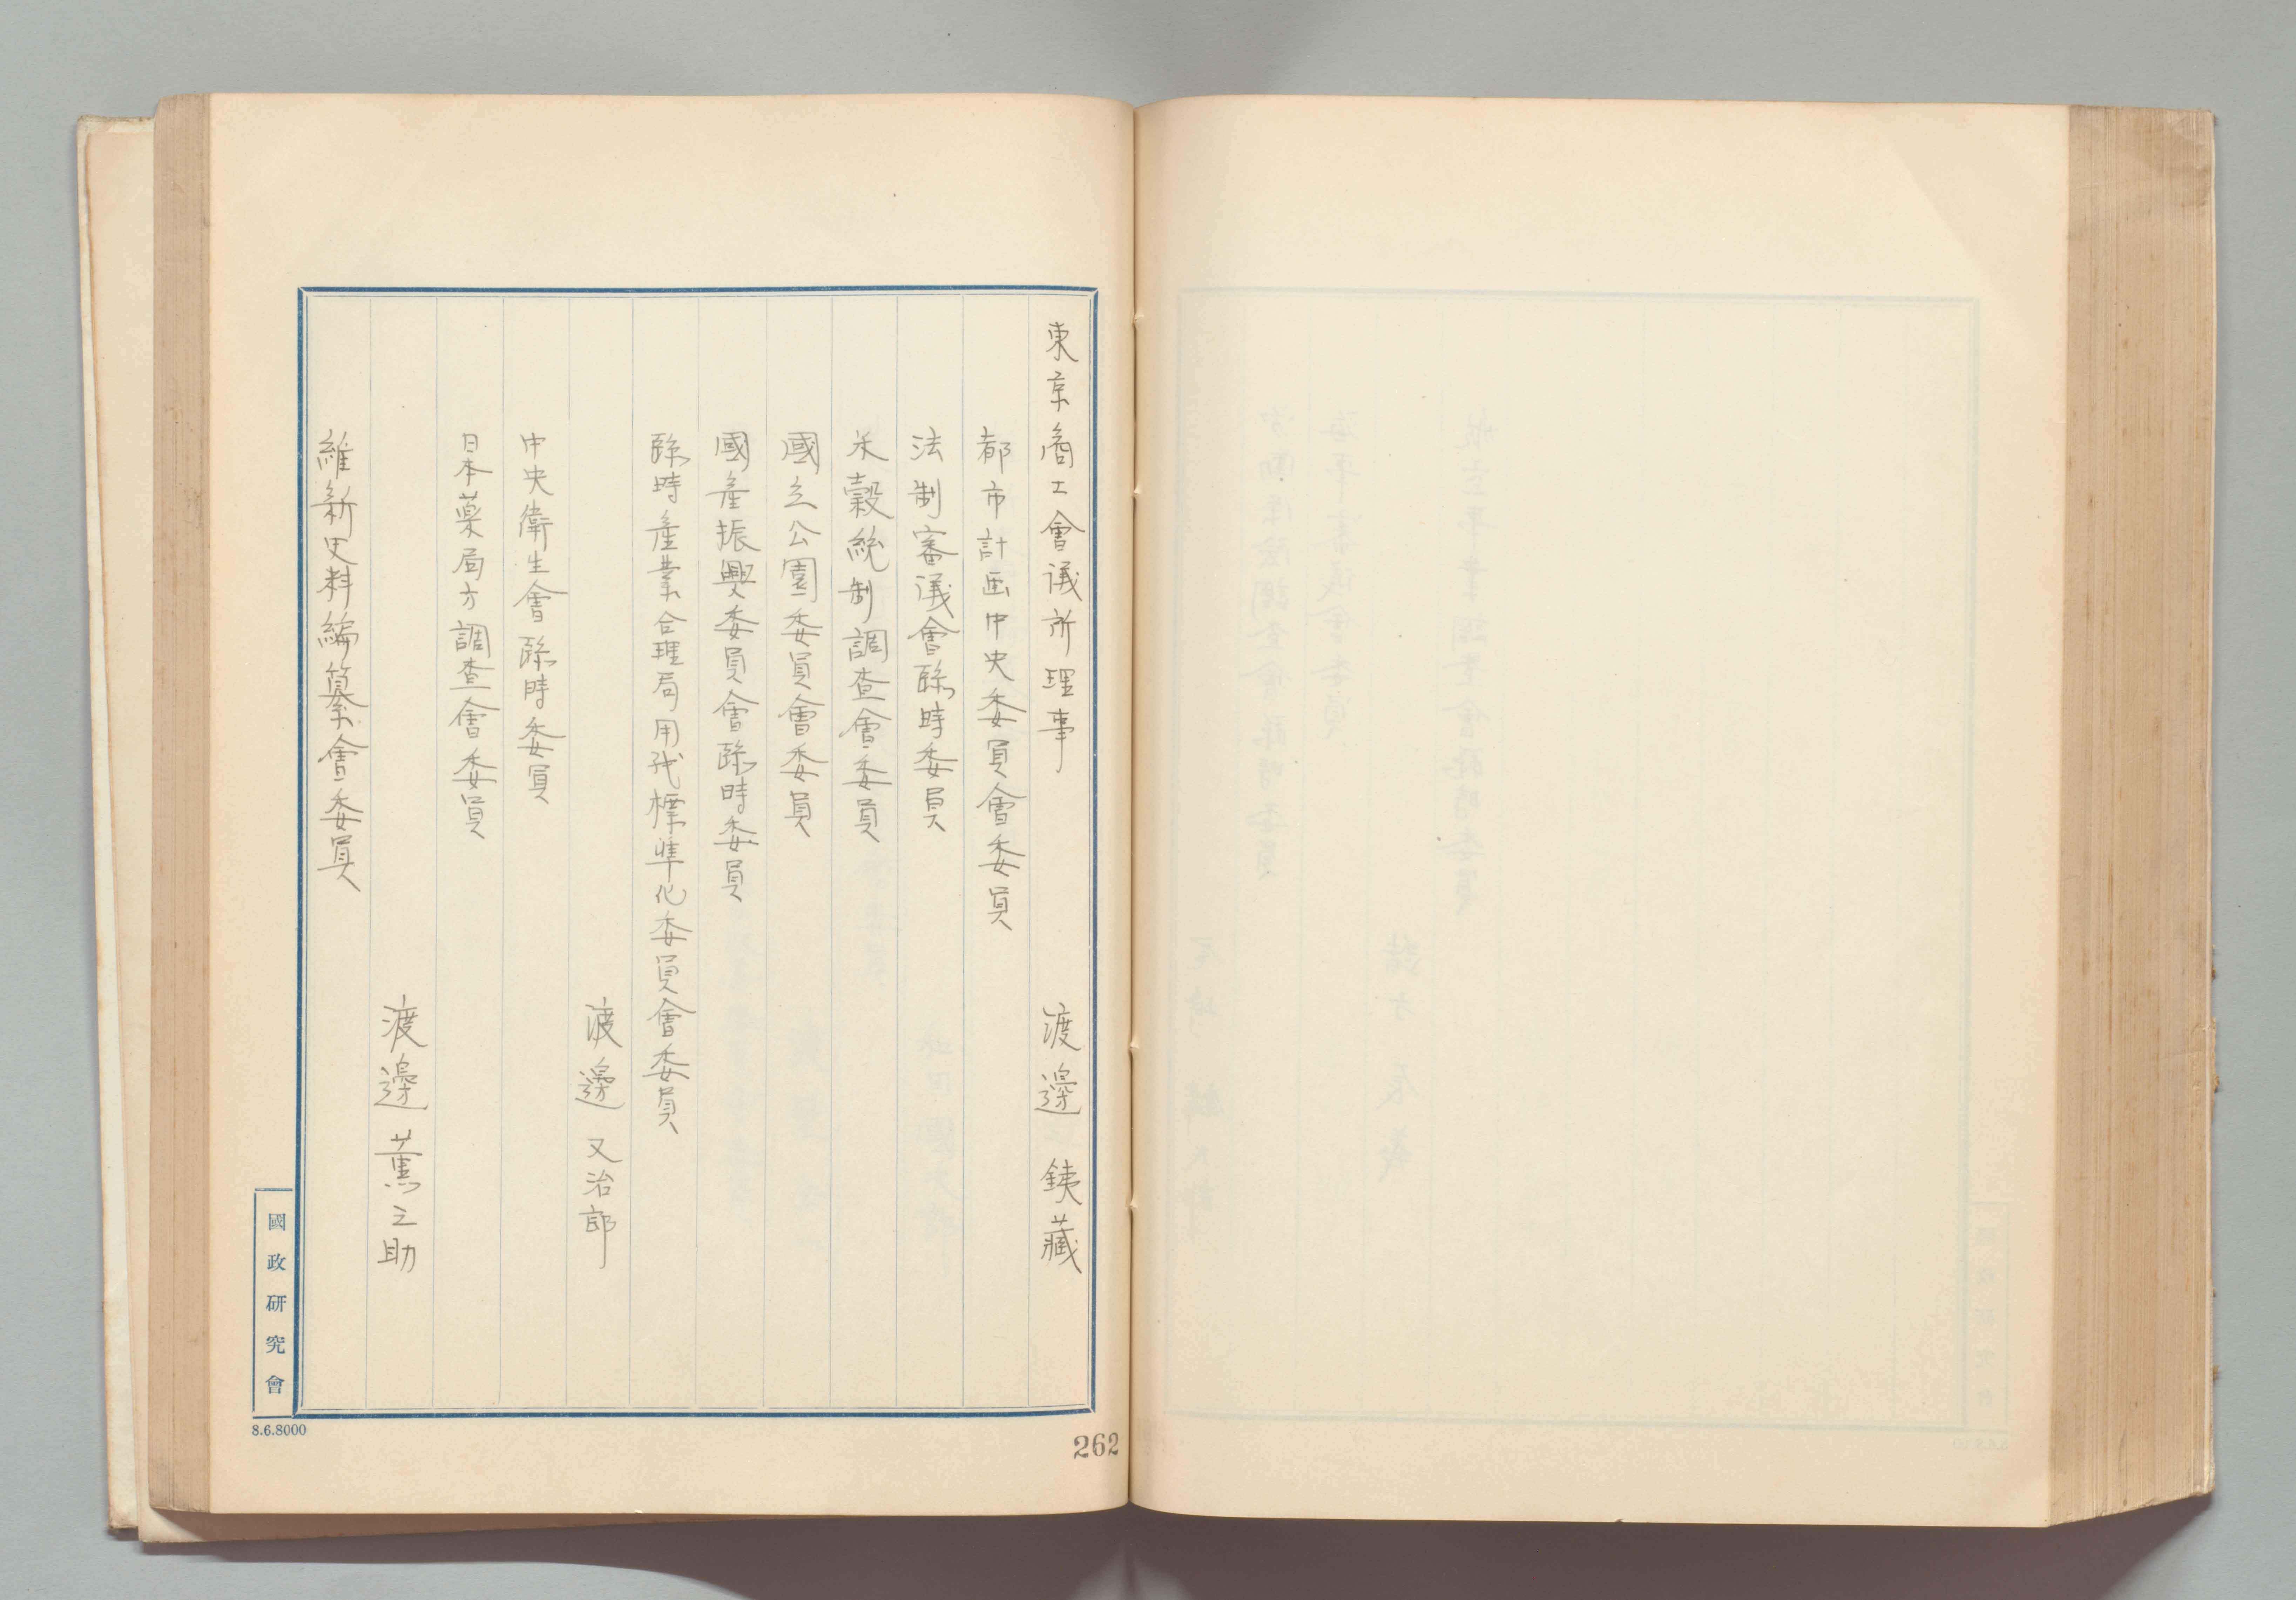 東京商工會議所理事　渡邊 銕藏
都市計画中央委員會委員
法制審議會臨時委員
米穀統制調査會委員
國立公園委員會委員
國產振興委員會臨時委員
臨時產業合理局用語標準化委員會委員
渡邊 又治郎
中央衛生會臨時委員
日本藥局方調査會委員
渡邊 薫之助
維新史料編纂會委員
國政研究會
8.6.8000
262